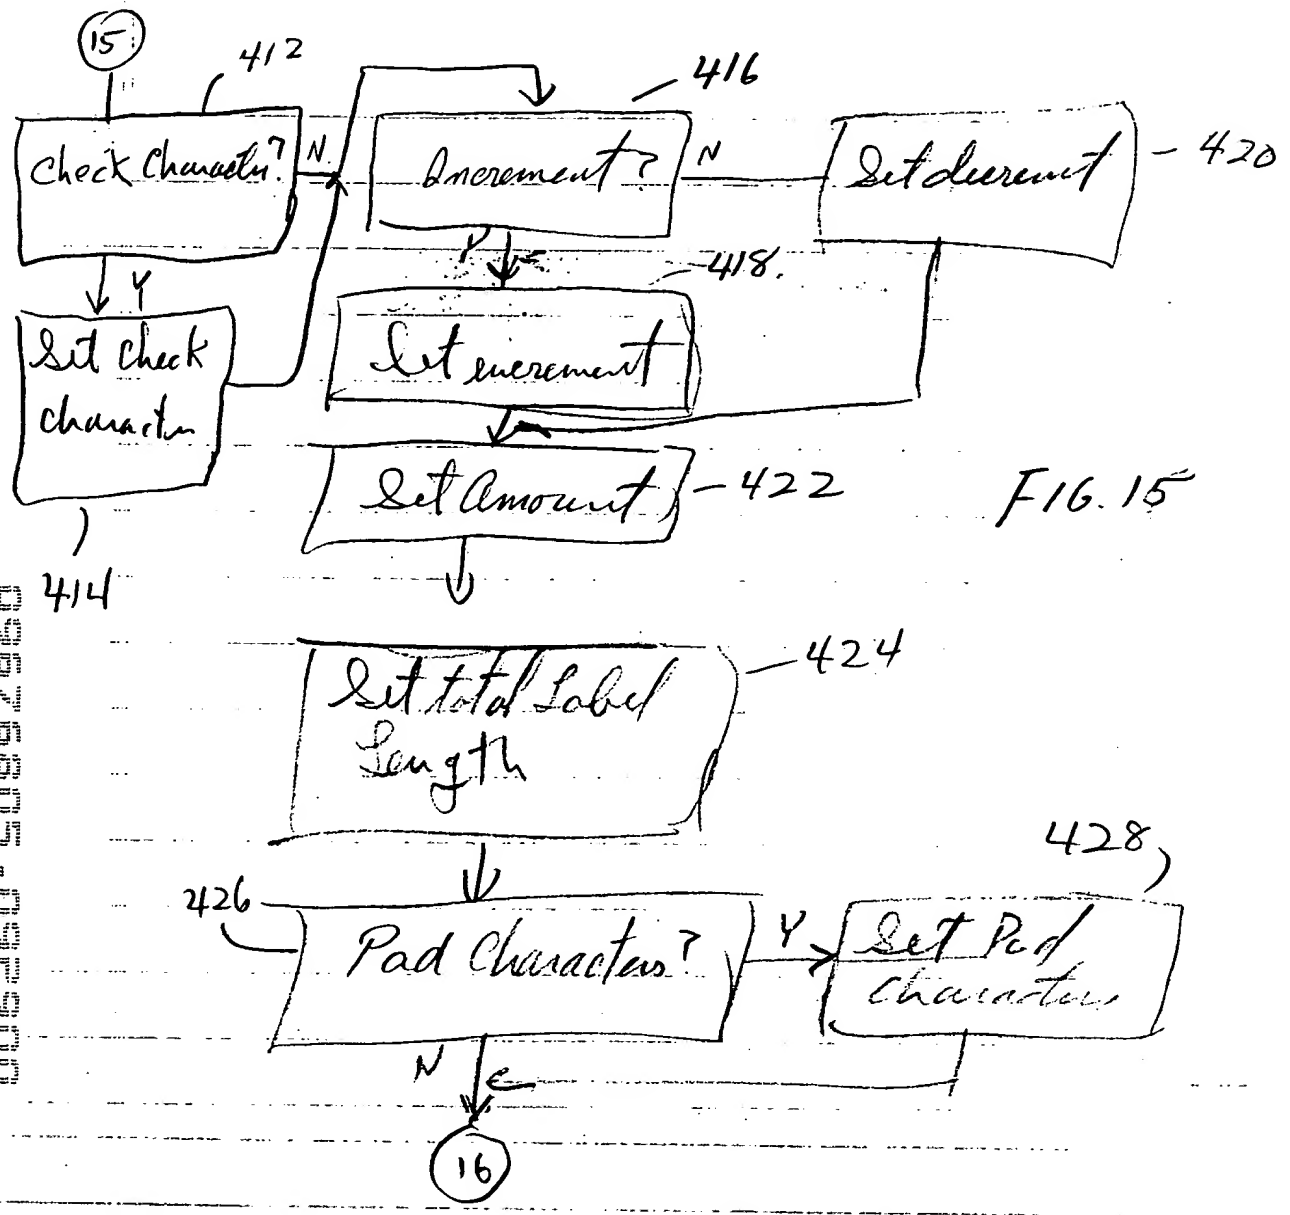 15
412
416
Check Character?
N
Increment?
N
Set decremt
420
Y
Y
418.
Set check
character
Set increment
414
Set Amount
422
FIG. 15
Set total Label
Length
424
428
426
Pad Characters?
Y
Set Pad
Characters
N
16